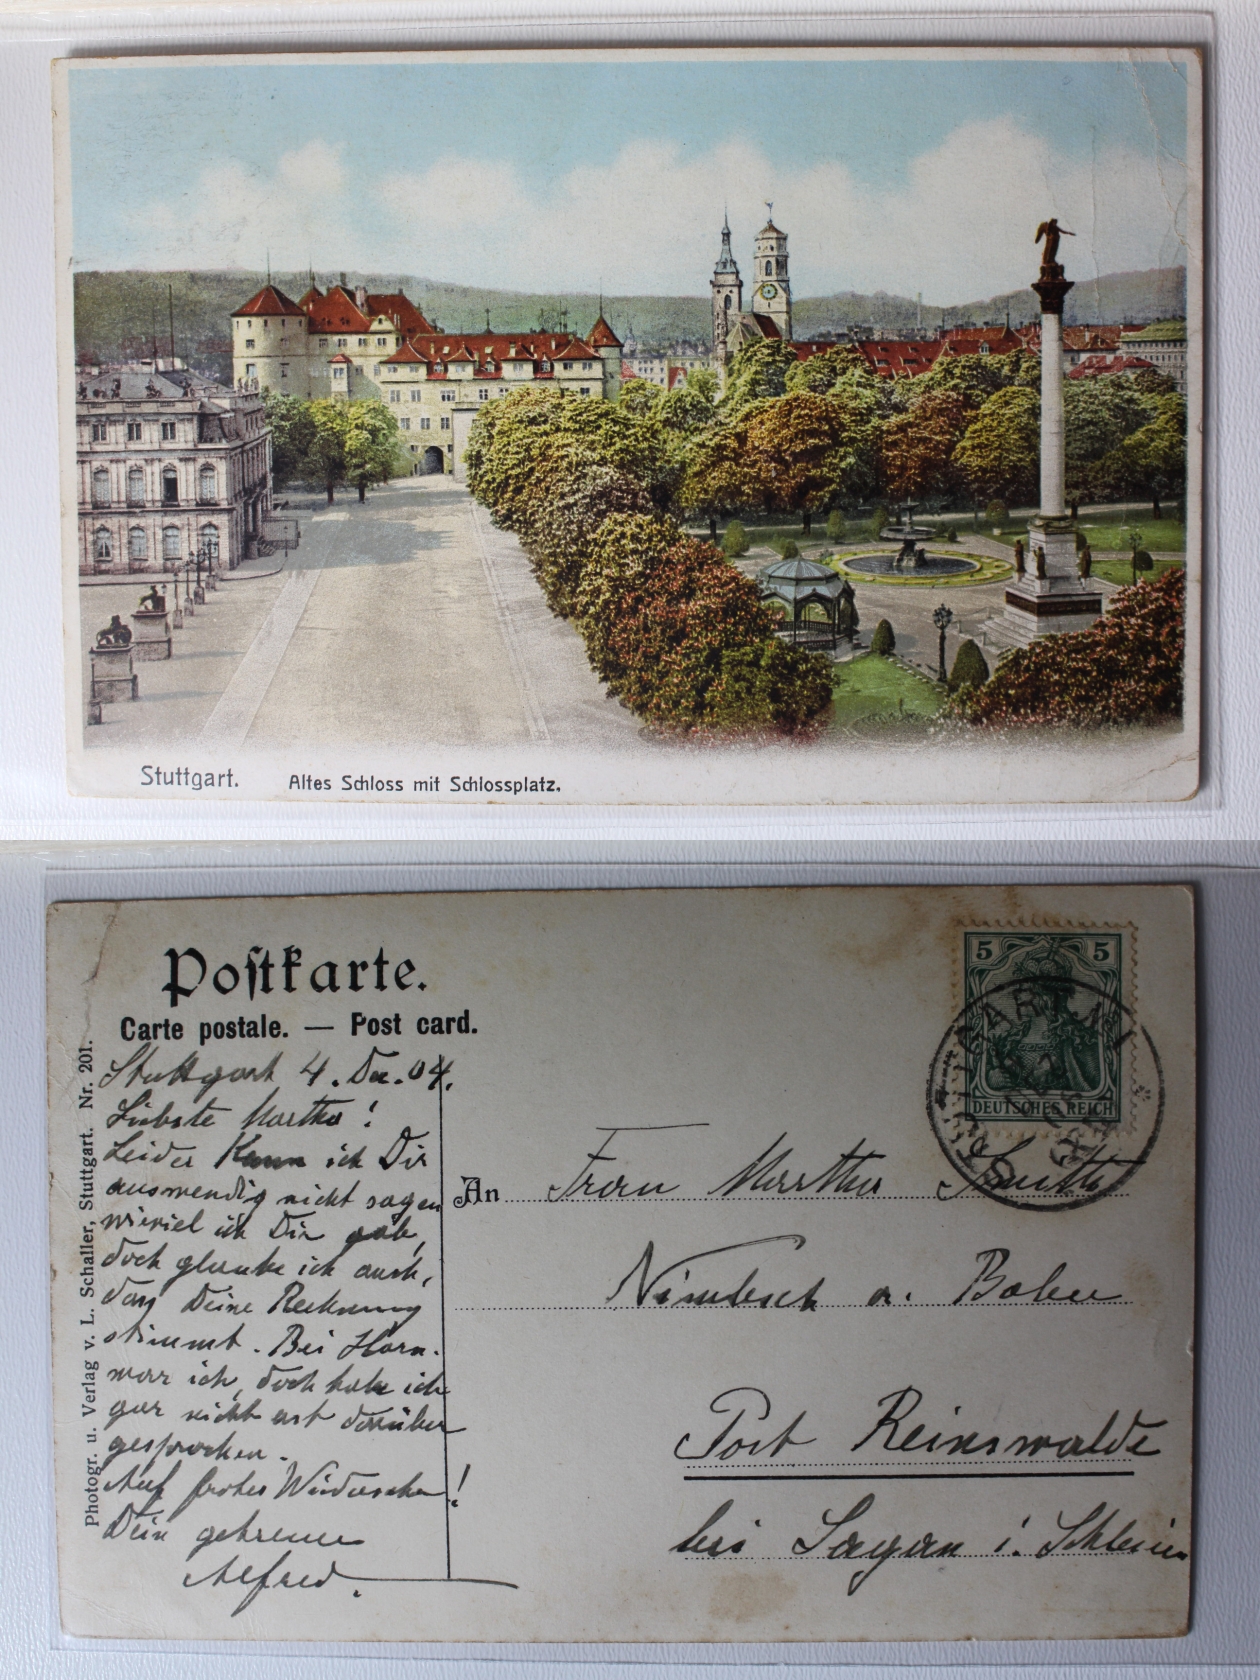 Stuttgart.
Altes Schloss mit Schlossplatz.
Postkarte.
Carte postale. — Post card.
Photogr. u. Verlag v. L. Schaller, Stuttgart. Nr. 201.
Stuttgart 4. Dez. 04.
Liebste Martha!
Leider kann ich Dir
auswendig nicht sagen
wieviel ich Dir gab,
doch glaube ich auch,
dass Deine Rechnung
stimmt. Bei Horn.
war ich, doch habe ich
gar nicht erst darüber
gesprochen.
Auf frohes Wiedersehen!
Dein getreuer
Alfred.
5 5
DEUTSCHES REICH
An Frau Martha
Nimbsch a. Bober
Post Reinswalde
bei Sagan i. Schlesien